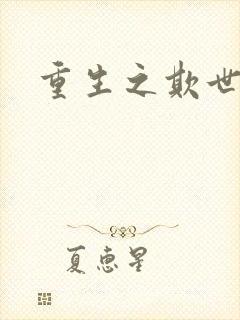 重生之欺世
夏惠星